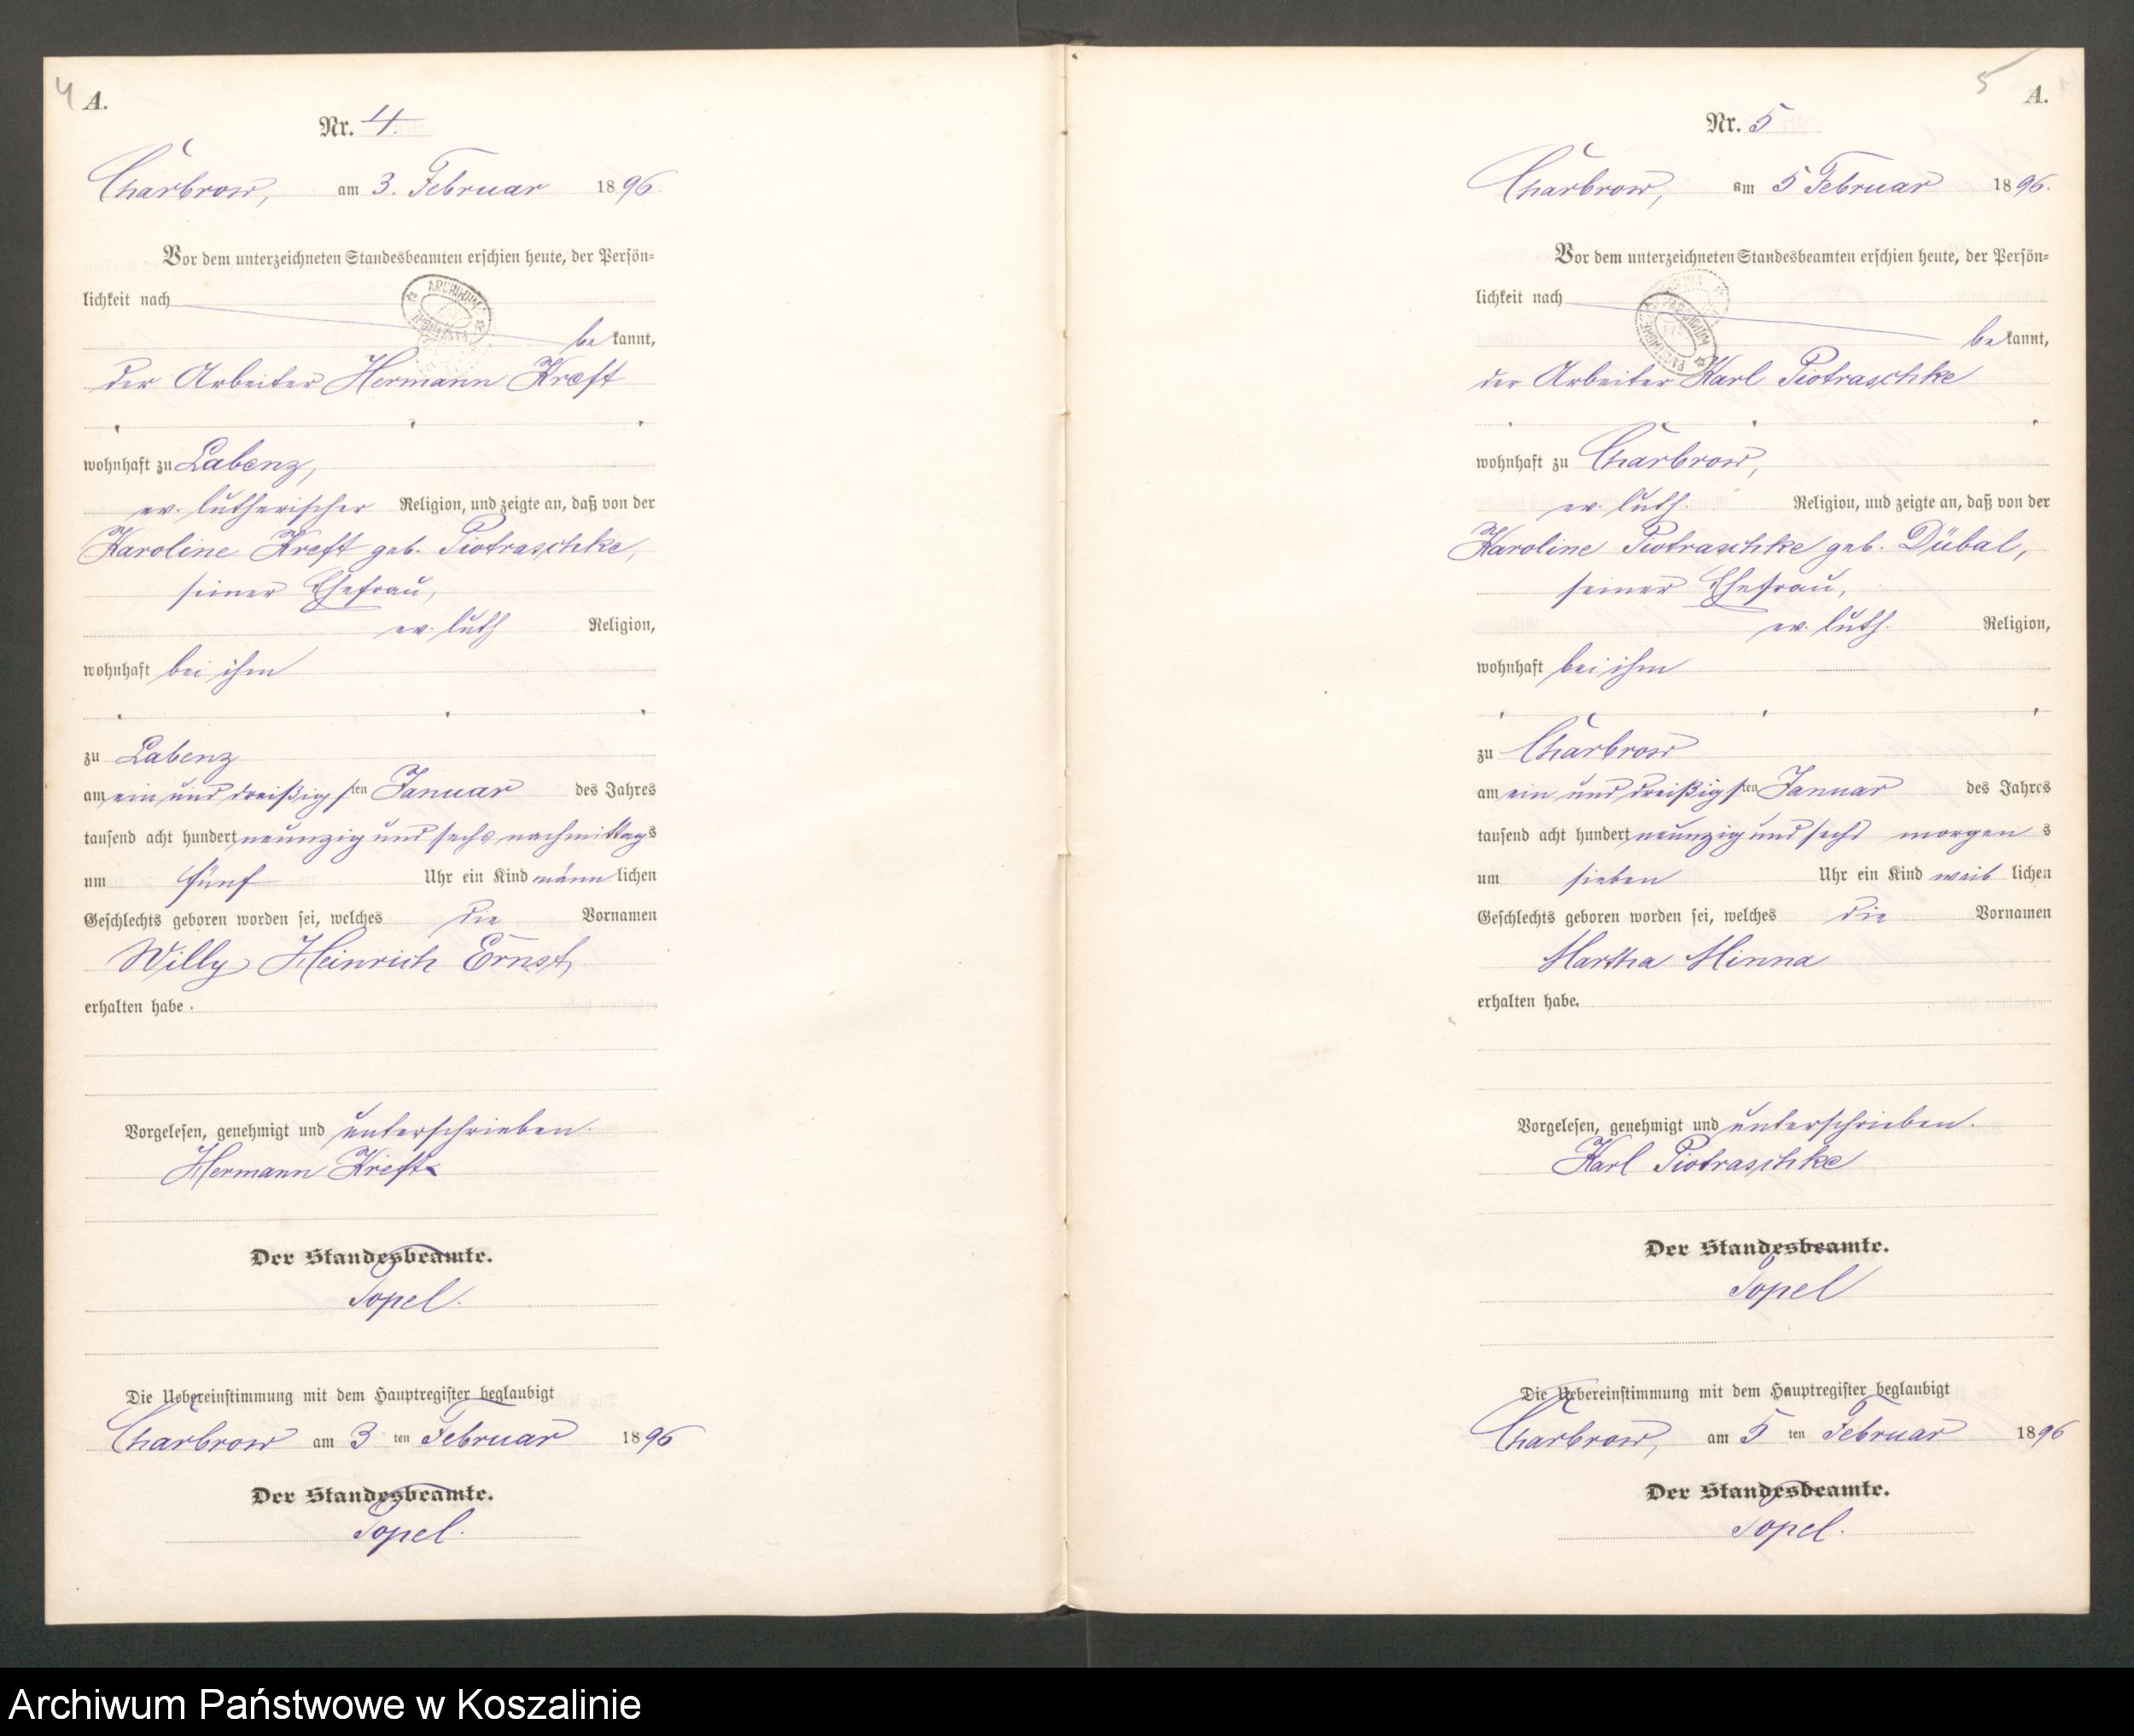 4
A.
Nr. 4.
Charbrow, am 3. Februar 1896.
Vor dem unterzeichneten Standesbeamten erschien heute, der Persön=
lichkeit nach
be kannt,
der Arbeiter Hermann Kreft
wohnhaft zu Labenz,
ev. lutherischer Religion, und zeigte an, daß von der
Karoline Kreft geb. Piotraschke,
seiner Ehefrau,
ev. luth Religion,
wohnhaft bei ihm
zu Labenz
am ein und dreißigsten Januar des Jahres
tausend acht hundert neunzig und sechs nachmittags
um fünf Uhr ein Kind männlichen
Geschlechts geboren worden sei, welches die Vornamen
Willy Heinrich Ernst
erhalten habe.
Vorgelesen, genehmigt und unterschrieben.
Hermann Kreft
Der Standesbeamte.
Topel.
Die Uebereinstimmung mit dem Hauptregister beglaubigt
Charbrow am 3 ten Februar 1896
Der Standesbeamte.
Topel.
5
A.
Nr. 5
Charbrow, am 5 Februar 1896.
Vor dem unterzeichneten Standesbeamten erschien heute, der Persön=
lichkeit nach
be kannt,
der Arbeiter Karl Piotraschke
wohnhaft zu Charbrow,
ev. luth. Religion, und zeigte an, daß von der
Karoline Piotraschke geb. Dübal,
seiner Ehefrau,
ev. luth. Religion,
wohnhaft bei ihm
zu Charbrow
am ein und dreißigsten Januar des Jahres
tausend acht hundert neunzig und sechs morgens
um sieben Uhr ein Kind weiblichen
Geschlechts geboren worden sei, welches die Vornamen
Martha Minna
erhalten habe.
Vorgelesen, genehmigt und unterschrieben.
Karl Piotraschke
Der Standesbeamte.
Topel
Die Uebereinstimmung mit dem Hauptregister beglaubigt
Charbrow, am 5 ten Februar 1896
Der Standesbeamte.
Topel.
Archiwum Państwowe w Koszalinie